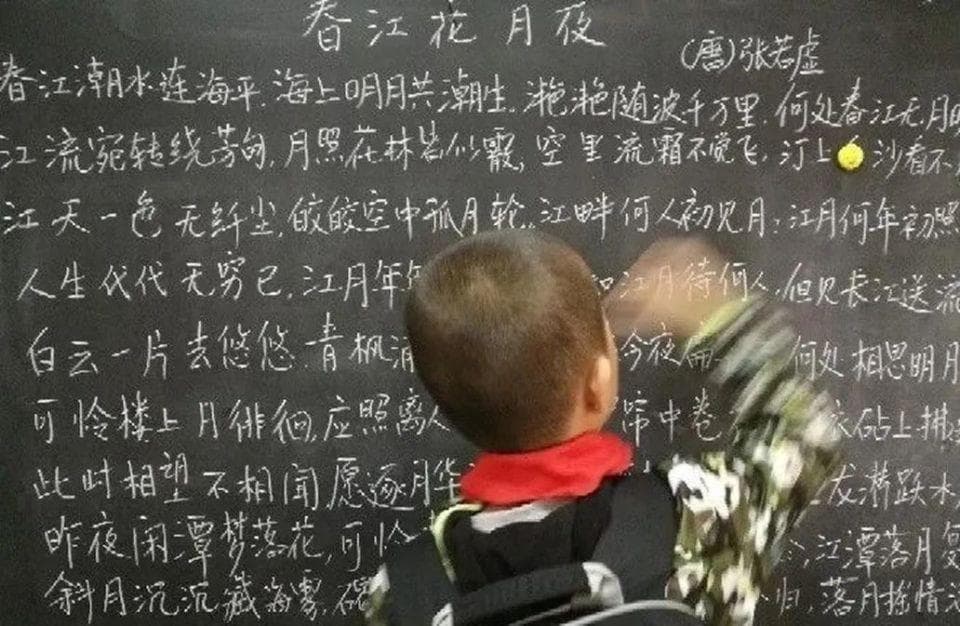 春江花月夜
(唐)张若虚
春江潮水连海平.海上明月共潮生.滟滟随波千万里,何处春江无月
江流宛转绕芳甸,月照花林皆似霰,空里流霜不觉飞,汀上 沙看不
江天一色无纤尘,皎皎空中孤月轮.江畔何人初见月;江月何年初照
人生代代无穷已,江月年年 江月待何人,但见长江送流
白云一片去悠悠.青枫浦 今夜扁 何处相思明月
可怜楼上月徘徊,应照离人 帘中卷 砧上拂
此时相望不相闻愿逐月华 龙潜跃水
昨夜闲潭梦落花,可怜 江潭落月复
斜月沉沉藏海雾,碣 归,落月摇情